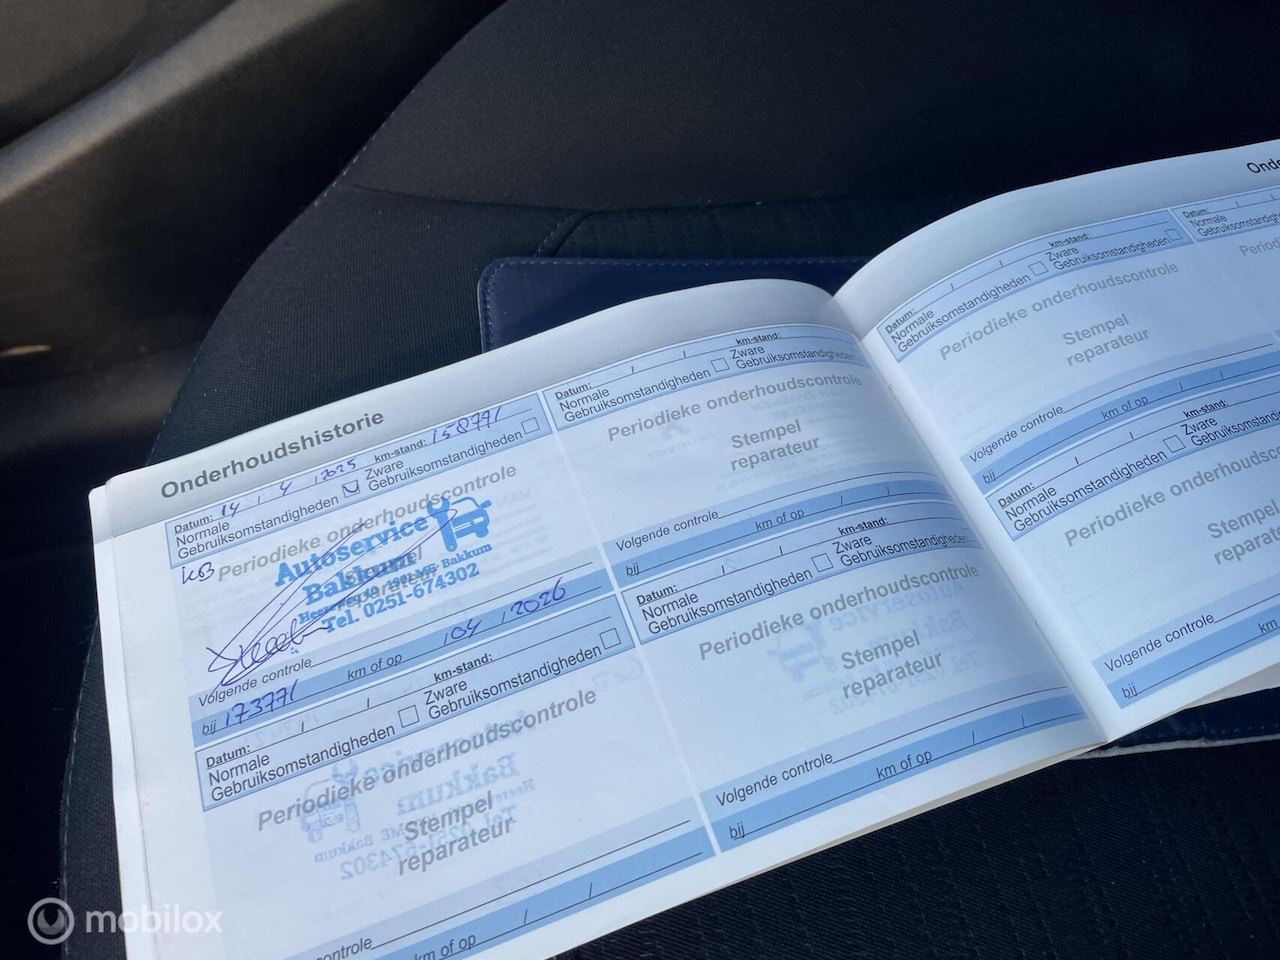 Onderhoudshistorie
Datum: 14 / 4 / 2025 km-stand: 158771
Normale Gebruiksomstandigheden
Zware Gebruiksomstandigheden
Periodieke onderhoudscontrole
Autoservice
Bakkum
Bakkum
Tel. 0251-674302
Volgende controle
bij 173771 km of op / 04 / 2026
Datum: / / km-stand:
Normale Gebruiksomstandigheden
Zware Gebruiksomstandigheden
Periodieke onderhoudscontrole
Stempel
reparateur
controle
km of op / /
Datum: / / km-stand:
Normale Gebruiksomstandigheden
Zware Gebruiksomstandigheden
Periodieke onderhoudscontrole
Stempel
reparateur
Volgende controle
bij km of op / /
Datum: / / km-stand:
Normale Gebruiksomstandigheden
Zware Gebruiksomstandigheden
Periodieke onderhoudscontrole
Stempel
reparateur
Volgende controle
bij km of op / /
Datum: / / km-stand:
Normale Gebruiksomstandigheden
Zware Gebruiksomstandigheden
Periodieke onderhoudscontrole
Stempel
reparateur
Volgende controle
bij km of op / /
Datum: / / km-stand:
Normale Gebruiksomstandigheden
Zware
Periodieke
Stempel
Volgende controle
bij
Datum:
Normale
mobilox